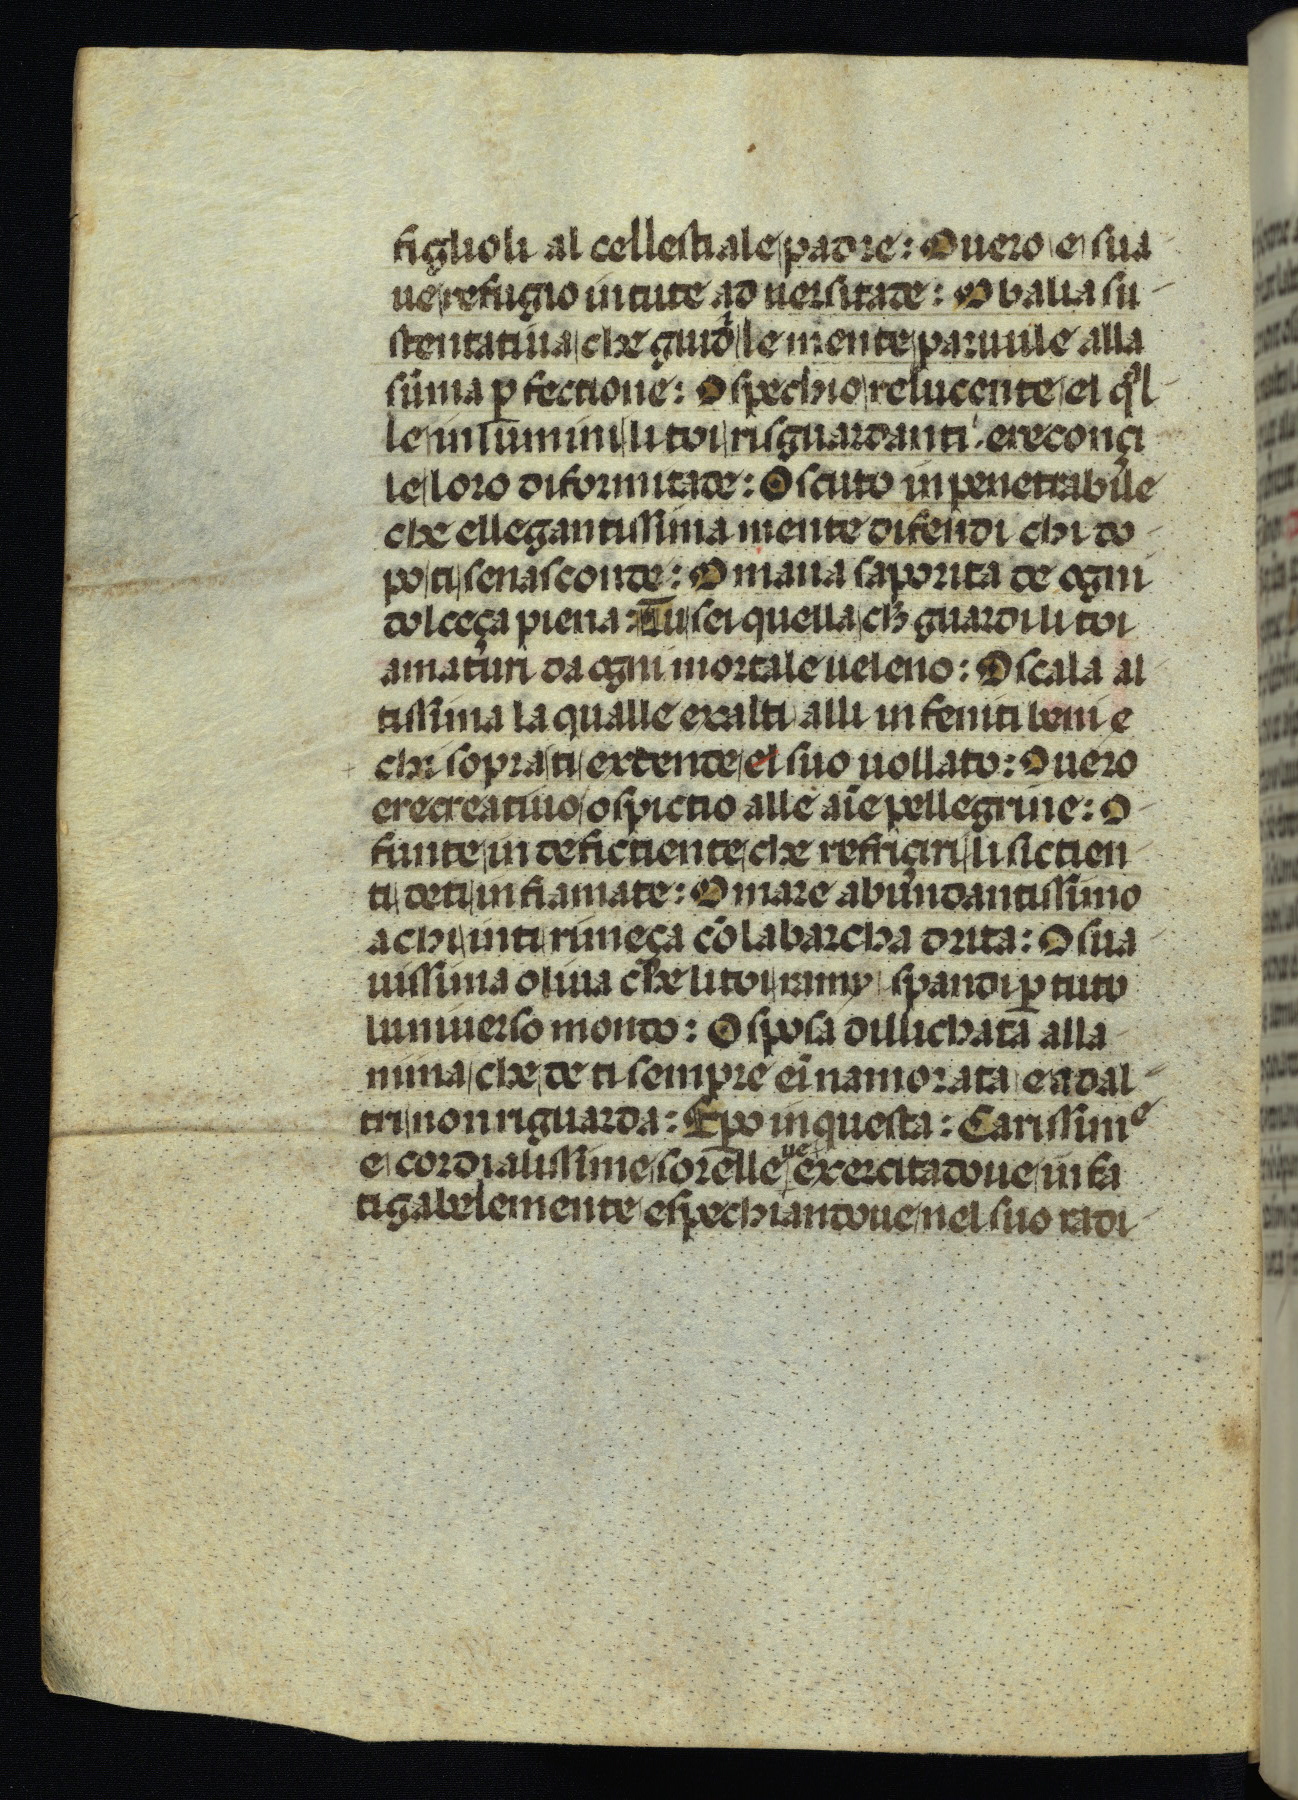 figlioli al cellestiale padre: O uero e sua
ue refugio in tute aduersitade: O balia su
stentatiua che guidi le mente paruule alla
sūma p̱fectione: O spechio relucente el q̄l
le inlumini li toi risguardanti e reconçi
le loro diformitade: O scuto inpenetrabile
che ellegantissima mente difendi chi do
po ti se nasconde: O mana saporita de ogni
dolceça piena: Tu sei quella ch̄ guardi li toi
amaturi da ogni mortale ueleno: O scala al
tissima la qualle exalti alli infeniti beni e
chi sopra ti extende el suo uollato: O uero
e recreatiuo ospictio alle aīe pellegrine: O
funte indefictiente che refriçiri li sictien
ti de ti infiamate: O mare abundantissimo
a chi in ti rimeça cō la barcha drita: O sua
uissima oliua che li toi ramy spandi p̱ tuto
luniuerso mondo: O sposa dillichata alla
nima che de ti sempre e inamorata e ad al
tri non riguarda: E p̱o in questa: Carissime
e cordialissime sorelle ue exercitadoue infa
tigabelemente e spechiandoue nel suo radi